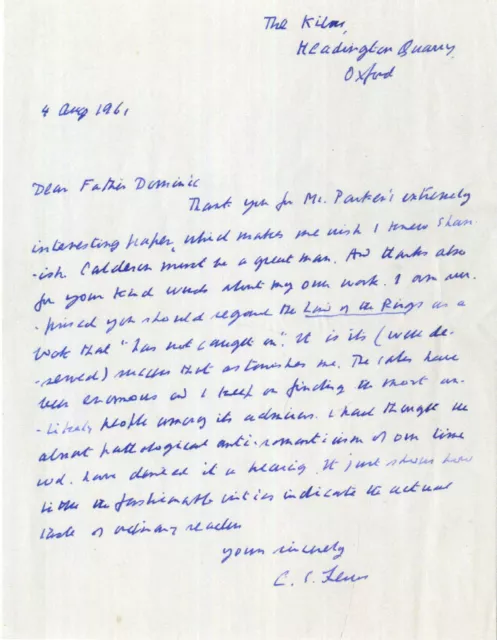 The Kilns,
Headington Quarry,
Oxford
4 Aug 1961
Dear Father Dominic
Thank you for Mr. Parker's extremely
interesting paper, which makes me wish I knew Span-
-ish. Calderon must be a great man. And thanks also
for your kind words about my own work. I am sur-
-prised you should regard the Lord of the Rings as a
book that "has not caught on". It is its (well de-
-served) success that astonishes me. The sales have
been enormous and I keep on finding the most un-
-likely people among its admirers. I had thought the
almost pathological anti-romanticism of our time
wd. have denied it a hearing. It just shows how
little the fashionable critics indicate the actual
taste of ordinary readers
yours sincerely
C. S. Lewis